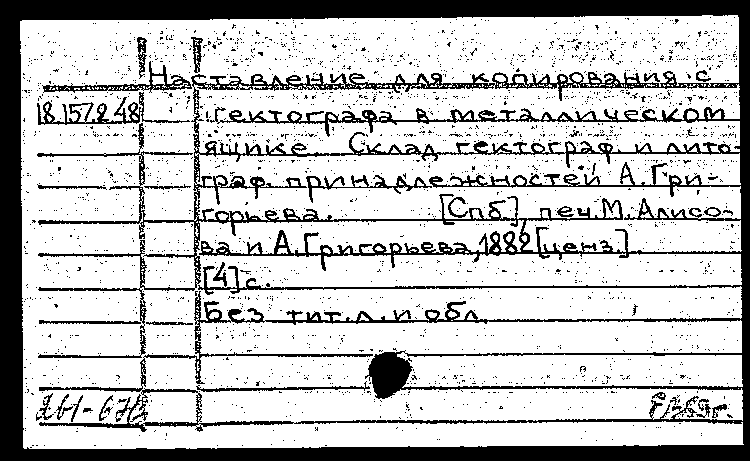 Наставление для копирования с
18.157.2.48 гектографа в металлическом
ящике. Склад гектограф. и лито-
граф. принадлежностей А. Гри-
горьева. [Спб], печ. М. Алисо-
ва и А. Григорьева, 1882 [ценз.]
[4] с.
Без тит. л. и обл.
261-678